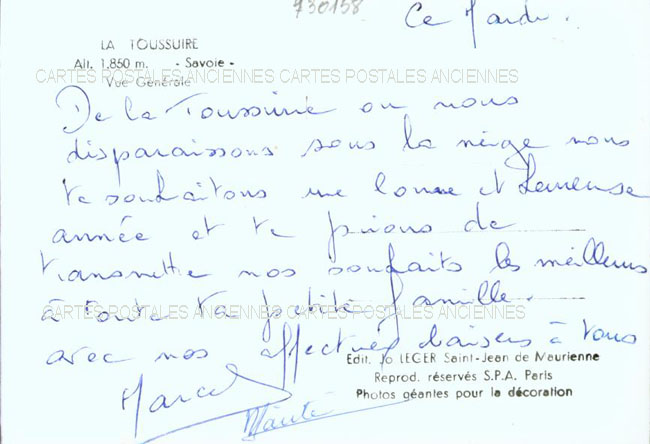 730158
Ce Mardi.
LA TOUSSUIRE
Alt. 1.850 m. - Savoie -
Vue Générale
CARTES POSTALES ANCIENNES CARTES POSTALES ANCIENNES
De la Toussuire ou nous
disparaissons sous la neige nous
te souhaitons une bonne et heureuse
année et te prions de
transmettre nos souhaits les meilleurs
à toute ta petite famille.
CARTES POSTALES ANCIENNES CARTES POSTALES ANCIENNES
avec nos affectueux baisers à tous
Marcel
Edit. Jo LEGER Saint-Jean de Maurienne
Reprod. réservés S.P.A. Paris
Photos géantes pour la décoration